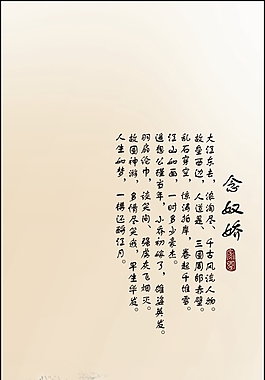 念奴娇
大江东去，浪淘尽、千古风流人物。
故垒西边，人道是、三国周郎赤壁。
乱石穿空，惊涛拍岸，卷起千堆雪。
江山如画，一时多少豪杰。
遥想公瑾当年，小乔初嫁了，雄姿英发。
羽扇纶巾，谈笑间、强虏灰飞烟灭。
故国神游，多情应笑我，早生华发。
人生如梦，一樽还酹江月。